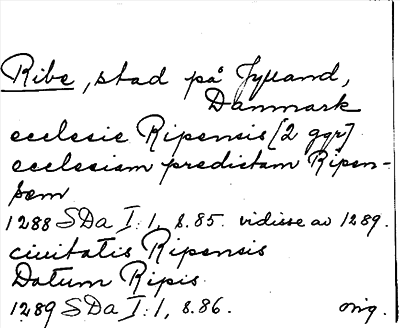 Ribe, stad på Jylland,
Danmark
ecclesie Ripensis [2 ggr]
ecclesiam predictam Ripen-
sem
1288 SDa I:1, s.85. vidisse av 1289.
ciuitatis Ripensis
Datum Ripis
1289 SDa I:1, s.86. orig.